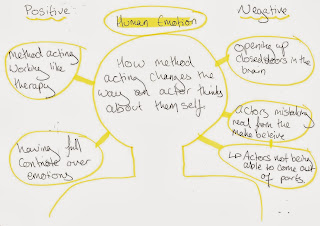 Positive
Human Emotion
Negative
Method acting
working like
therapy
How method
acting changes the
way an actor thinks
about them self
Opening up
closed doors in the
brain
Having full
controle over
emotions
Actors mistaking
real from the
make beleive
↳ Actors not being
able to come out
of parts.
...